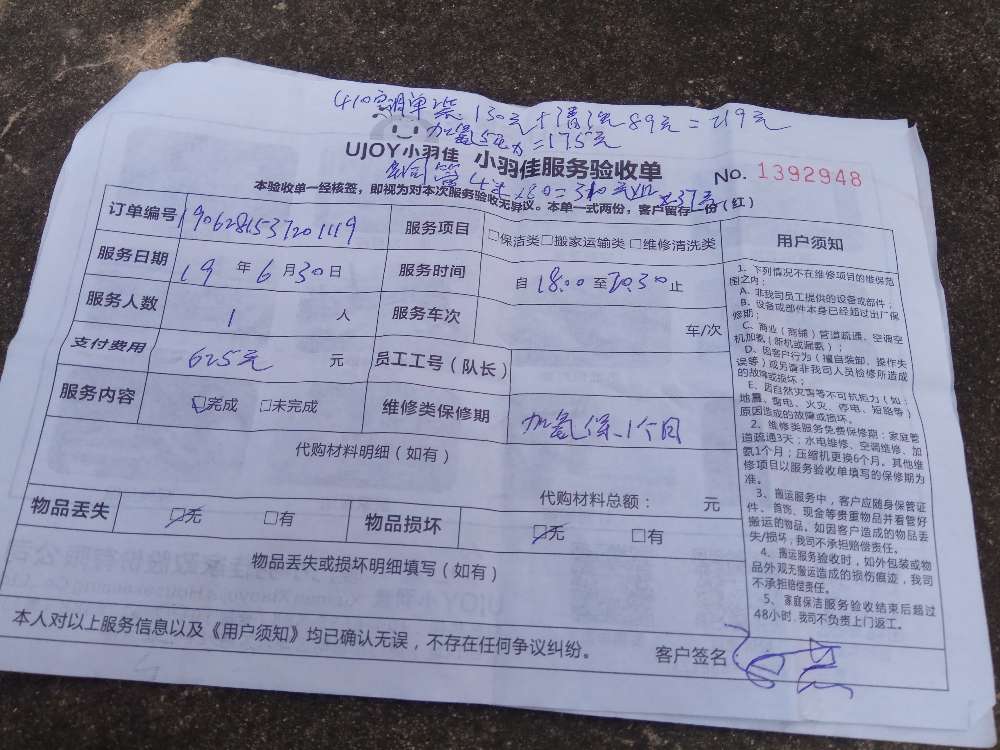 410 单 装 130元+清洗89元=219元
加氨5 力=175元
UJOY小羽佳 小羽佳服务验收单
No. 1392948
铜管 4米 元
本验收单一经核签,即视为对本次服务验收无异议。本单一式两份,客户留存一份(红)
订单编号 1906281537201119 服务项目 □保洁类□搬家运输类 □维修清洗类
服务日期 19 年 6 月 30 日 服务时间 自 18:00 至 20:30 止
服务人数 1 人 服务车次 车/次
支付费用 625元 元 员工工号(队长)
服务内容 ☑完成 □未完成 维修类保修期 加氨保1个月
代购材料明细(如有)
代购材料总额: 元
物品丢失 ☑无 □有 物品损坏 ☑无 □有
物品丢失或损坏明细填写(如有)
本人对以上服务信息以及《用户须知》均已确认无误,不存在任何争议纠纷。 客户签名
用户须知
1、下列情况不在维修项目的维保范
围之内:
A、非我司员工提供的设备或部件;
B、设备或部件本身已经超过出厂保
修期;
C、商业(商铺)管道疏通、空调空
机加氨(新机或漏氨);
D、因客户行为(擅自装卸、操作失
误等)或另请非我司人员检修所造成
的故障或损坏;
E、因自然灾害等不可抗拒力(如:
地震、雷电、火灾、停电、短路等)
原因造成的故障或损坏。
2、维修类服务免费保修期:家庭管
道疏通3天;水电维修、空调维修、加
氨1个月;压缩机更换6个月。其他维
修项目以服务验收单填写的保修期为
准。
3、搬运服务中,客户应随身保管证
件、首饰、现金等贵重物品并看管好
搬运的物品。如因客户造成的物品丢
失/损坏,我司不承担赔偿责任。
4、搬运服务验收时,如外包装或物
品外观无搬运造成的损伤痕迹,我司
不承担赔偿责任。
5、家庭保洁服务验收结束后超过
48小时,我司不负责上门返工。